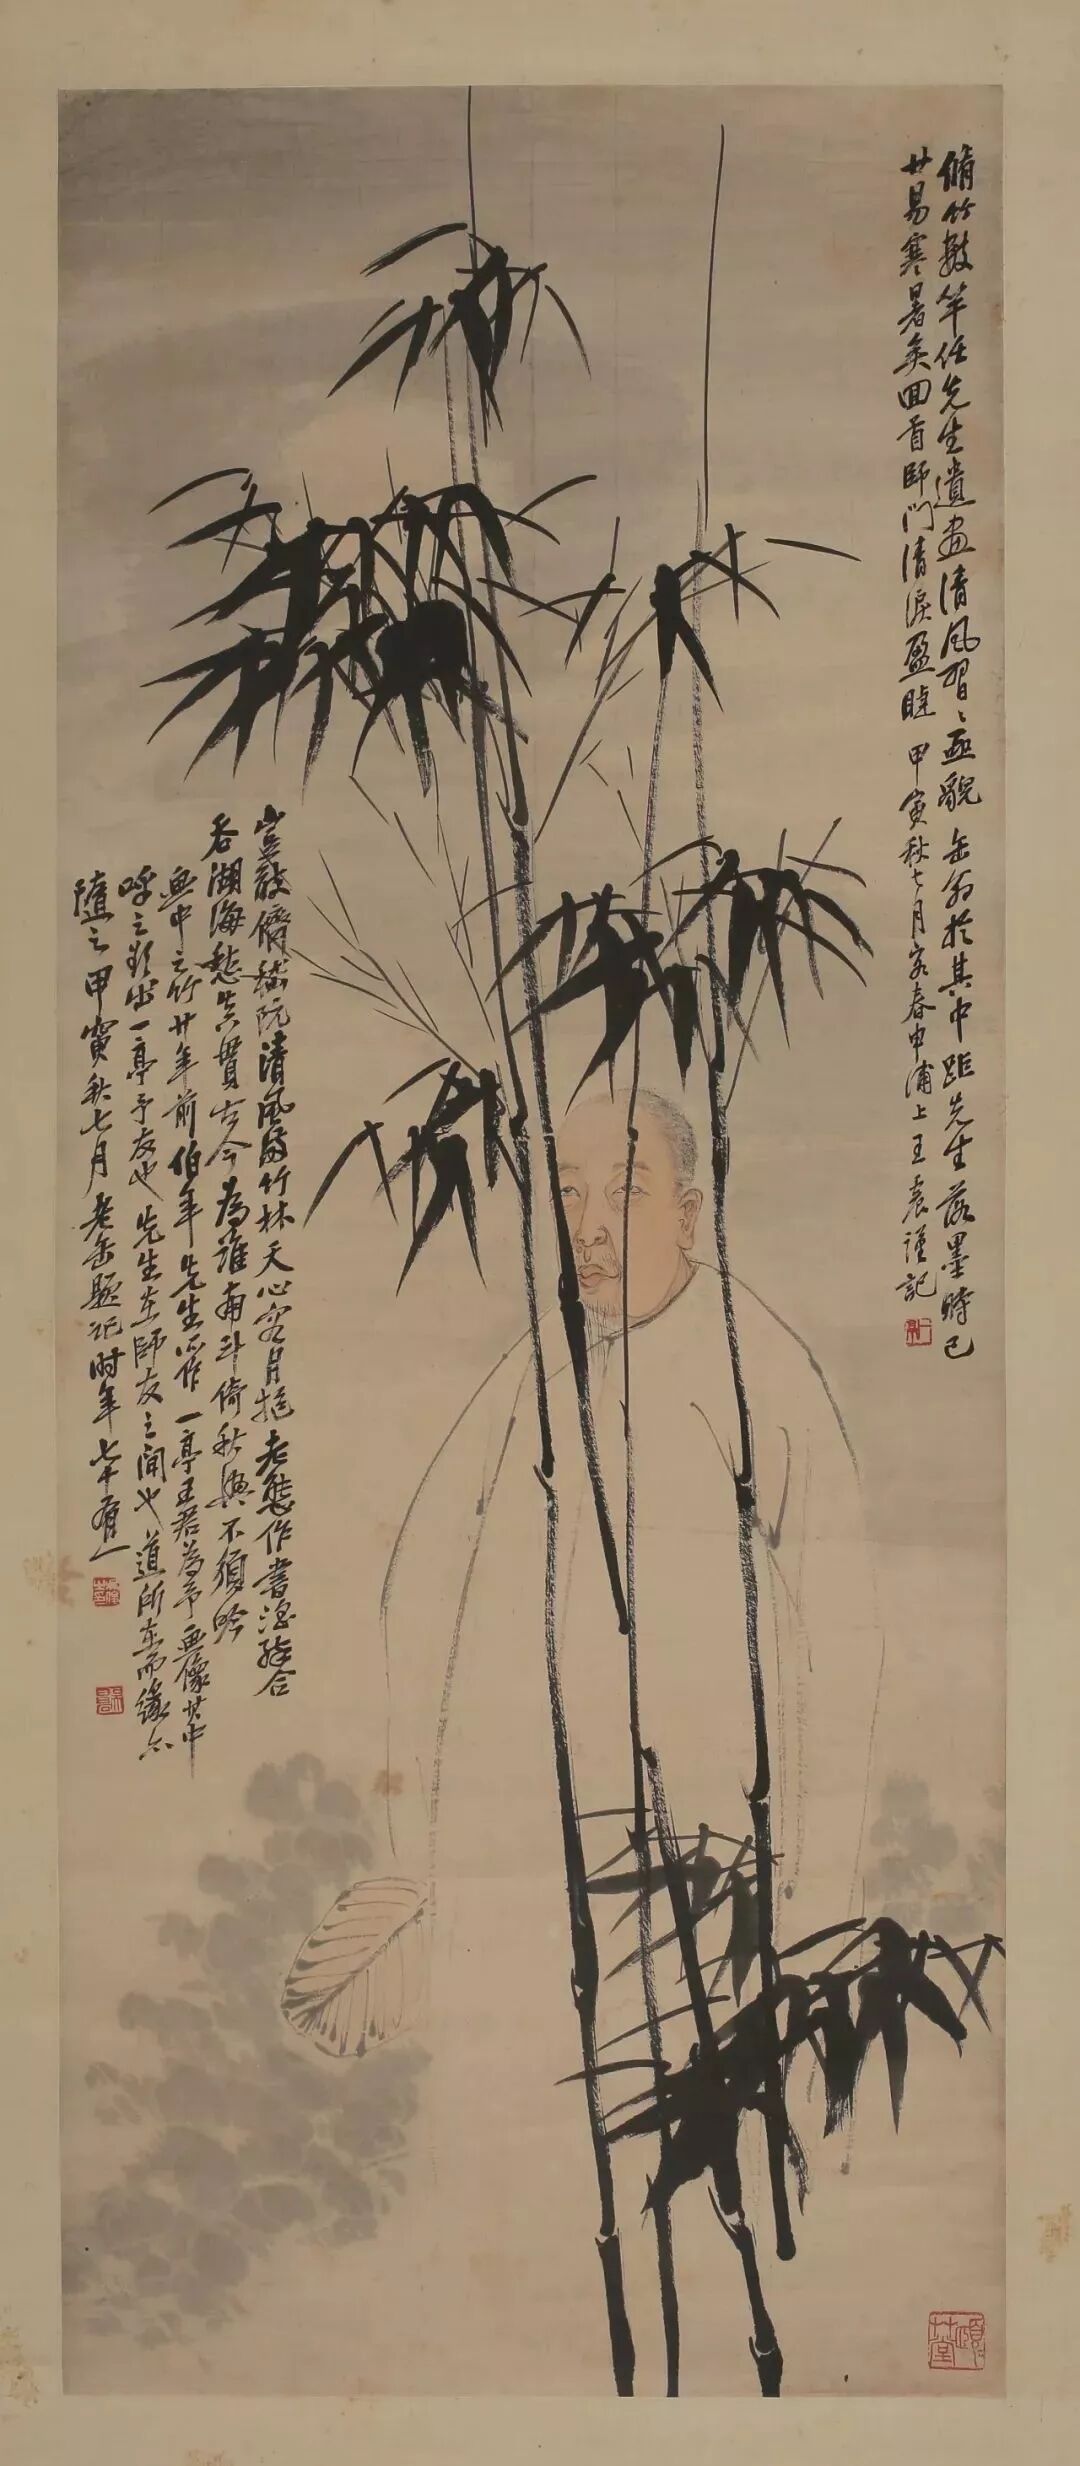 脩竹數竿任先生遺畫清風習〻亟貌缶翁於其中距先生落墨時已
廿易寒暑矣回首師門清淚盈睫甲寅秋七月客春申浦上王震謹記
豈敢儕嵇阮清風滿竹林天心寄月抱老態作書淫絳合
吞湖海愁真貫古今為誰南斗倚秋興不須吟
画中之竹廿年前伯年先生所作一亭王君為予画像其中
呼之欲出一亭予友也先生在師友之間也道所在而緣亦
隨之甲寅秋七月老缶題記時年七十有一